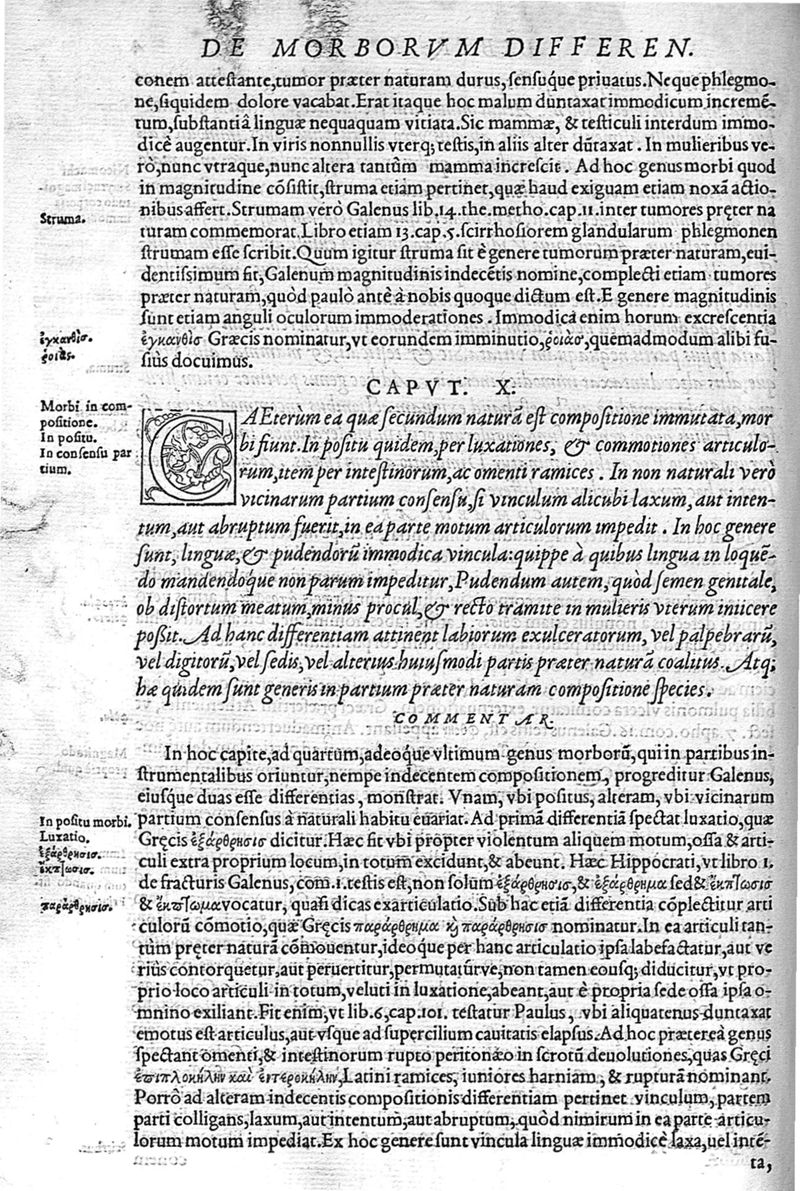 DE MORBORVM DIFFEREN.
conem attestante,tumor præter naturam durus,sensuq́ue priuatus.Neque phlegmo-
ne,siquidem dolore vacabat.Erat itaque hoc malum duntaxat immodicum incremẽ-
tum,substantiâ linguæ nequaquam vitiata.Sic mammæ, & testiculi interdum immo-
dicè augentur.In viris nonnullis vterq; testis,in aliis alter dũtaxat. In mulieribus ve-
rò,nunc vtraque,nunc altera tantùm mamma increscit. Ad hoc genus morbi quod
in magnitudine cõsistit,struma etiam pertinet,quæ haud exiguam etiam noxã actio-
Struma.
nibus affert.Strumam verò Galenus lib.14.the.metho.cap.11.inter tumores pręter na
turam commemorat.Libro etiam 13.cap.5.scirrhosiorem glandularum phlegmonen
strumam esse scribit.Quum igitur struma sit è genere tumorum præter naturam,eui-
dentissimum fit,Galenum magnitudinis indecẽtis nomine,complecti etiam tumores
præter naturam,quòd paulò antè à nobis quoque dictum est.E genere magnitudinis
sunt etiam anguli oculorum immoderationes. Immodica enim horum excrescentia
ἐγκανθίς.
ῥοιάς.
ἐγκανθὶσ Græcis nominatur,vt eorundem imminutio,ῥοιὰσ,quemadmodum alibi fu-
siùs docuimus.
CAPVT. X.
Morbi in com-
positione.
In positu.
In consensu par
tium.
CAEterùm ea quæ secundum naturã est compositione immutata,mor
bi fiunt.In positu quidem,per luxationes, & commotiones articulo-
rum,item per intestinorum,ac omenti ramices. In non naturali verò
vicinarum partium consensu,si vinculum alicubi laxum, aut inten-
tum,aut abruptum fuerit,in ea parte motum articulorum impedit. In hoc genere
sunt, linguæ,& pudendorũ immodica vincula:quippe à quibus lingua in loquẽ-
do mandendoque non parum impeditur,Pudendum autem,quòd semen genitale,
ob distortum meatum,minus procul,& recto tramite in mulieris vterum iniicere
possit.Ad hanc differentiam attinent labiorum exulceratorum, vel palpebrarũ,
vel digitorũ,vel sedis,vel alterius huiusmodi partis præter naturã coalitus.Atq;
hæ quidem sunt generis in partium præter naturam compositione species.
COMMENTAR.
In hoc capite,ad quartum,adeoque vltimum genus morborũ,qui in partibus in-
strumentalibus oriuntur,nempe indecentem compositionem, progreditur Galenus,
eiusque duas esse differentias, monstrat. Vnam, vbi positus,alteram, vbi vicinarum
In positu morbi.
Luxatio.
ἐξάρθρησις.
ἔκπτωσις.
partium consensus à naturali habitu euariat. Ad primã differentiã spectat luxatio,quæ
Gręcis ἐξάρθρησισ dicitur.Hæc fit vbi propter violentum aliquem motum,ossa & arti-
culi extra proprium locum,in totum excidunt,& abeunt. Hæc Hippocrati,vt libro 1.
de fracturis Galenus, com.1.testis est,non solùm ἐξάρθρησισ,& ἐξάρθρημα sed& ἔκπτωσισ
παράρθρησις.
& ἔκπτωμα vocatur, quasi dicas exarticulatio.Sub hac etiã differentia cõplectitur arti
culorũ cõmotio,quæ Gręcis παράρθρημα ϗ παράρθρησισ nominatur.In ea articuli tan-
tùm pręter naturã cõmouentur,ideoque per hanc articulatio ipsa labefactatur,aut ve
riùs contorquetur,aut peruertitur,permutatúrve,non tamen eousq; diducitur,vt pro-
prio loco articuli in totum,veluti in luxatione,abeant,aut è propria sede ossa ipsa o-
mnino exiliant.Fit enim,vt lib.6,cap.101. testatur Paulus, vbi aliquatenus duntaxat
emotus est articulus,aut vsque ad supercilium cauitatis elapsus. Ad hoc præterea genus
spectant omenti,& intestinorum rupto peritonæo in scrotũ deuolutiones,quas Gręci
ἐπιπλοκήλην καὶ ἐντεροκήλην,Latini ramices, iuniores harniam, & rupturã nominant.
Porrò ad alteram indecentis compositionis differentiam pertinet vinculum, partem
parti colligans,laxum,aut intentum,aut abruptum,quòd nimirum in ea parte articu-
lorum motum impediat.Ex hoc genere sunt vincula linguæ immodicè laxa,uel intẽ-
ta,